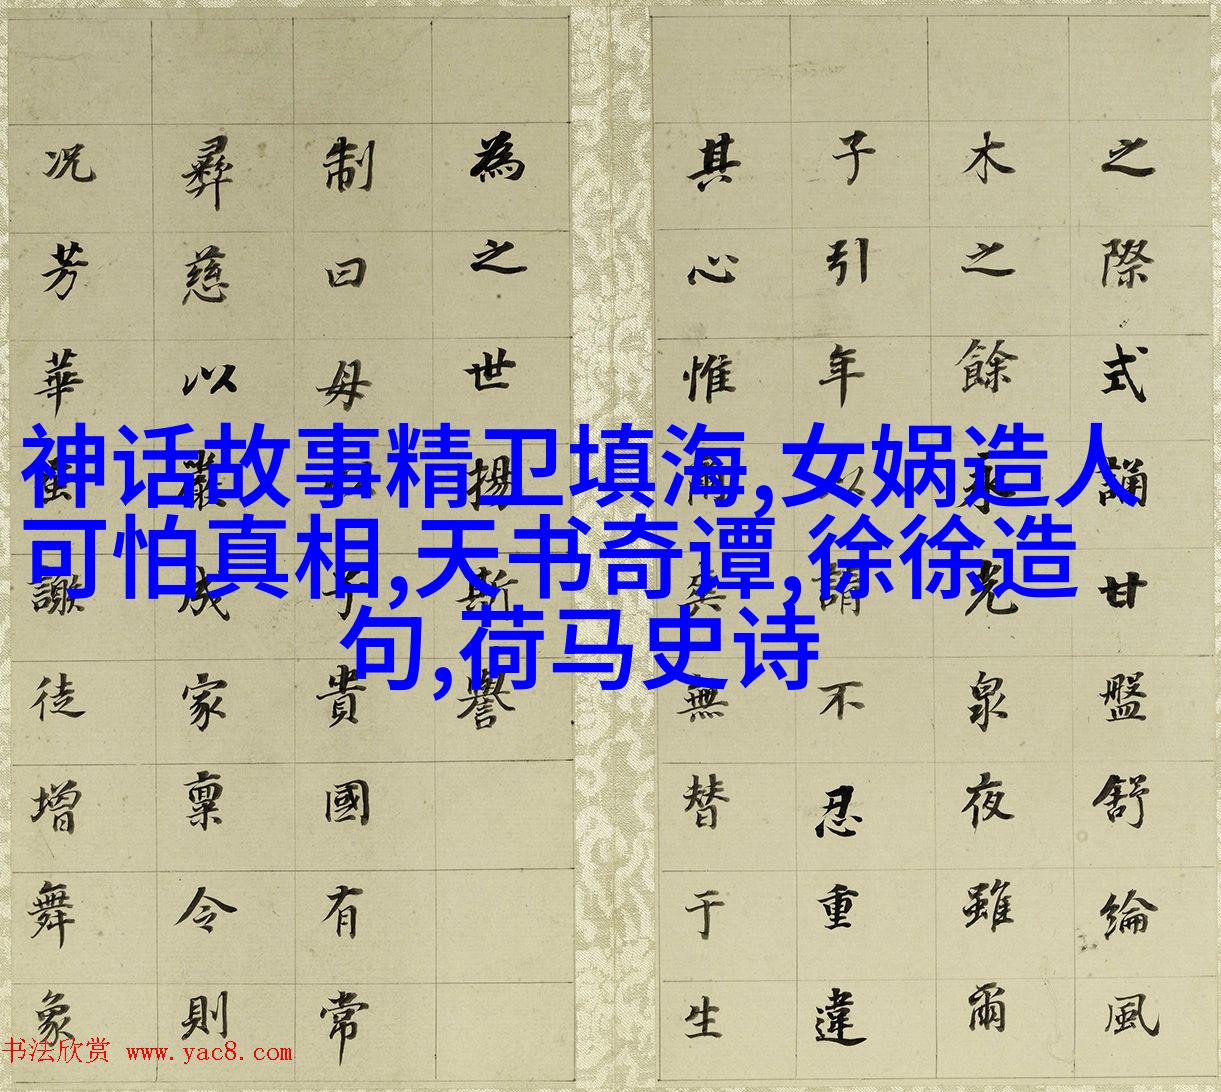 神话故事精卫填海,女娲造人
可怕真相,天书奇谭,徐徐造
句,荷马史诗
之際式誦甘盤舒綸風
木之餘永光泉夜雖爾
子引年以謂不忍重違
其心惟爾無替于生
為之世揚斯譽
制曰母以子貴國有常
彝慈以嚴成家稟令則
况芳華蚤謝徒增舞象
书法欣赏 www.yac8.com